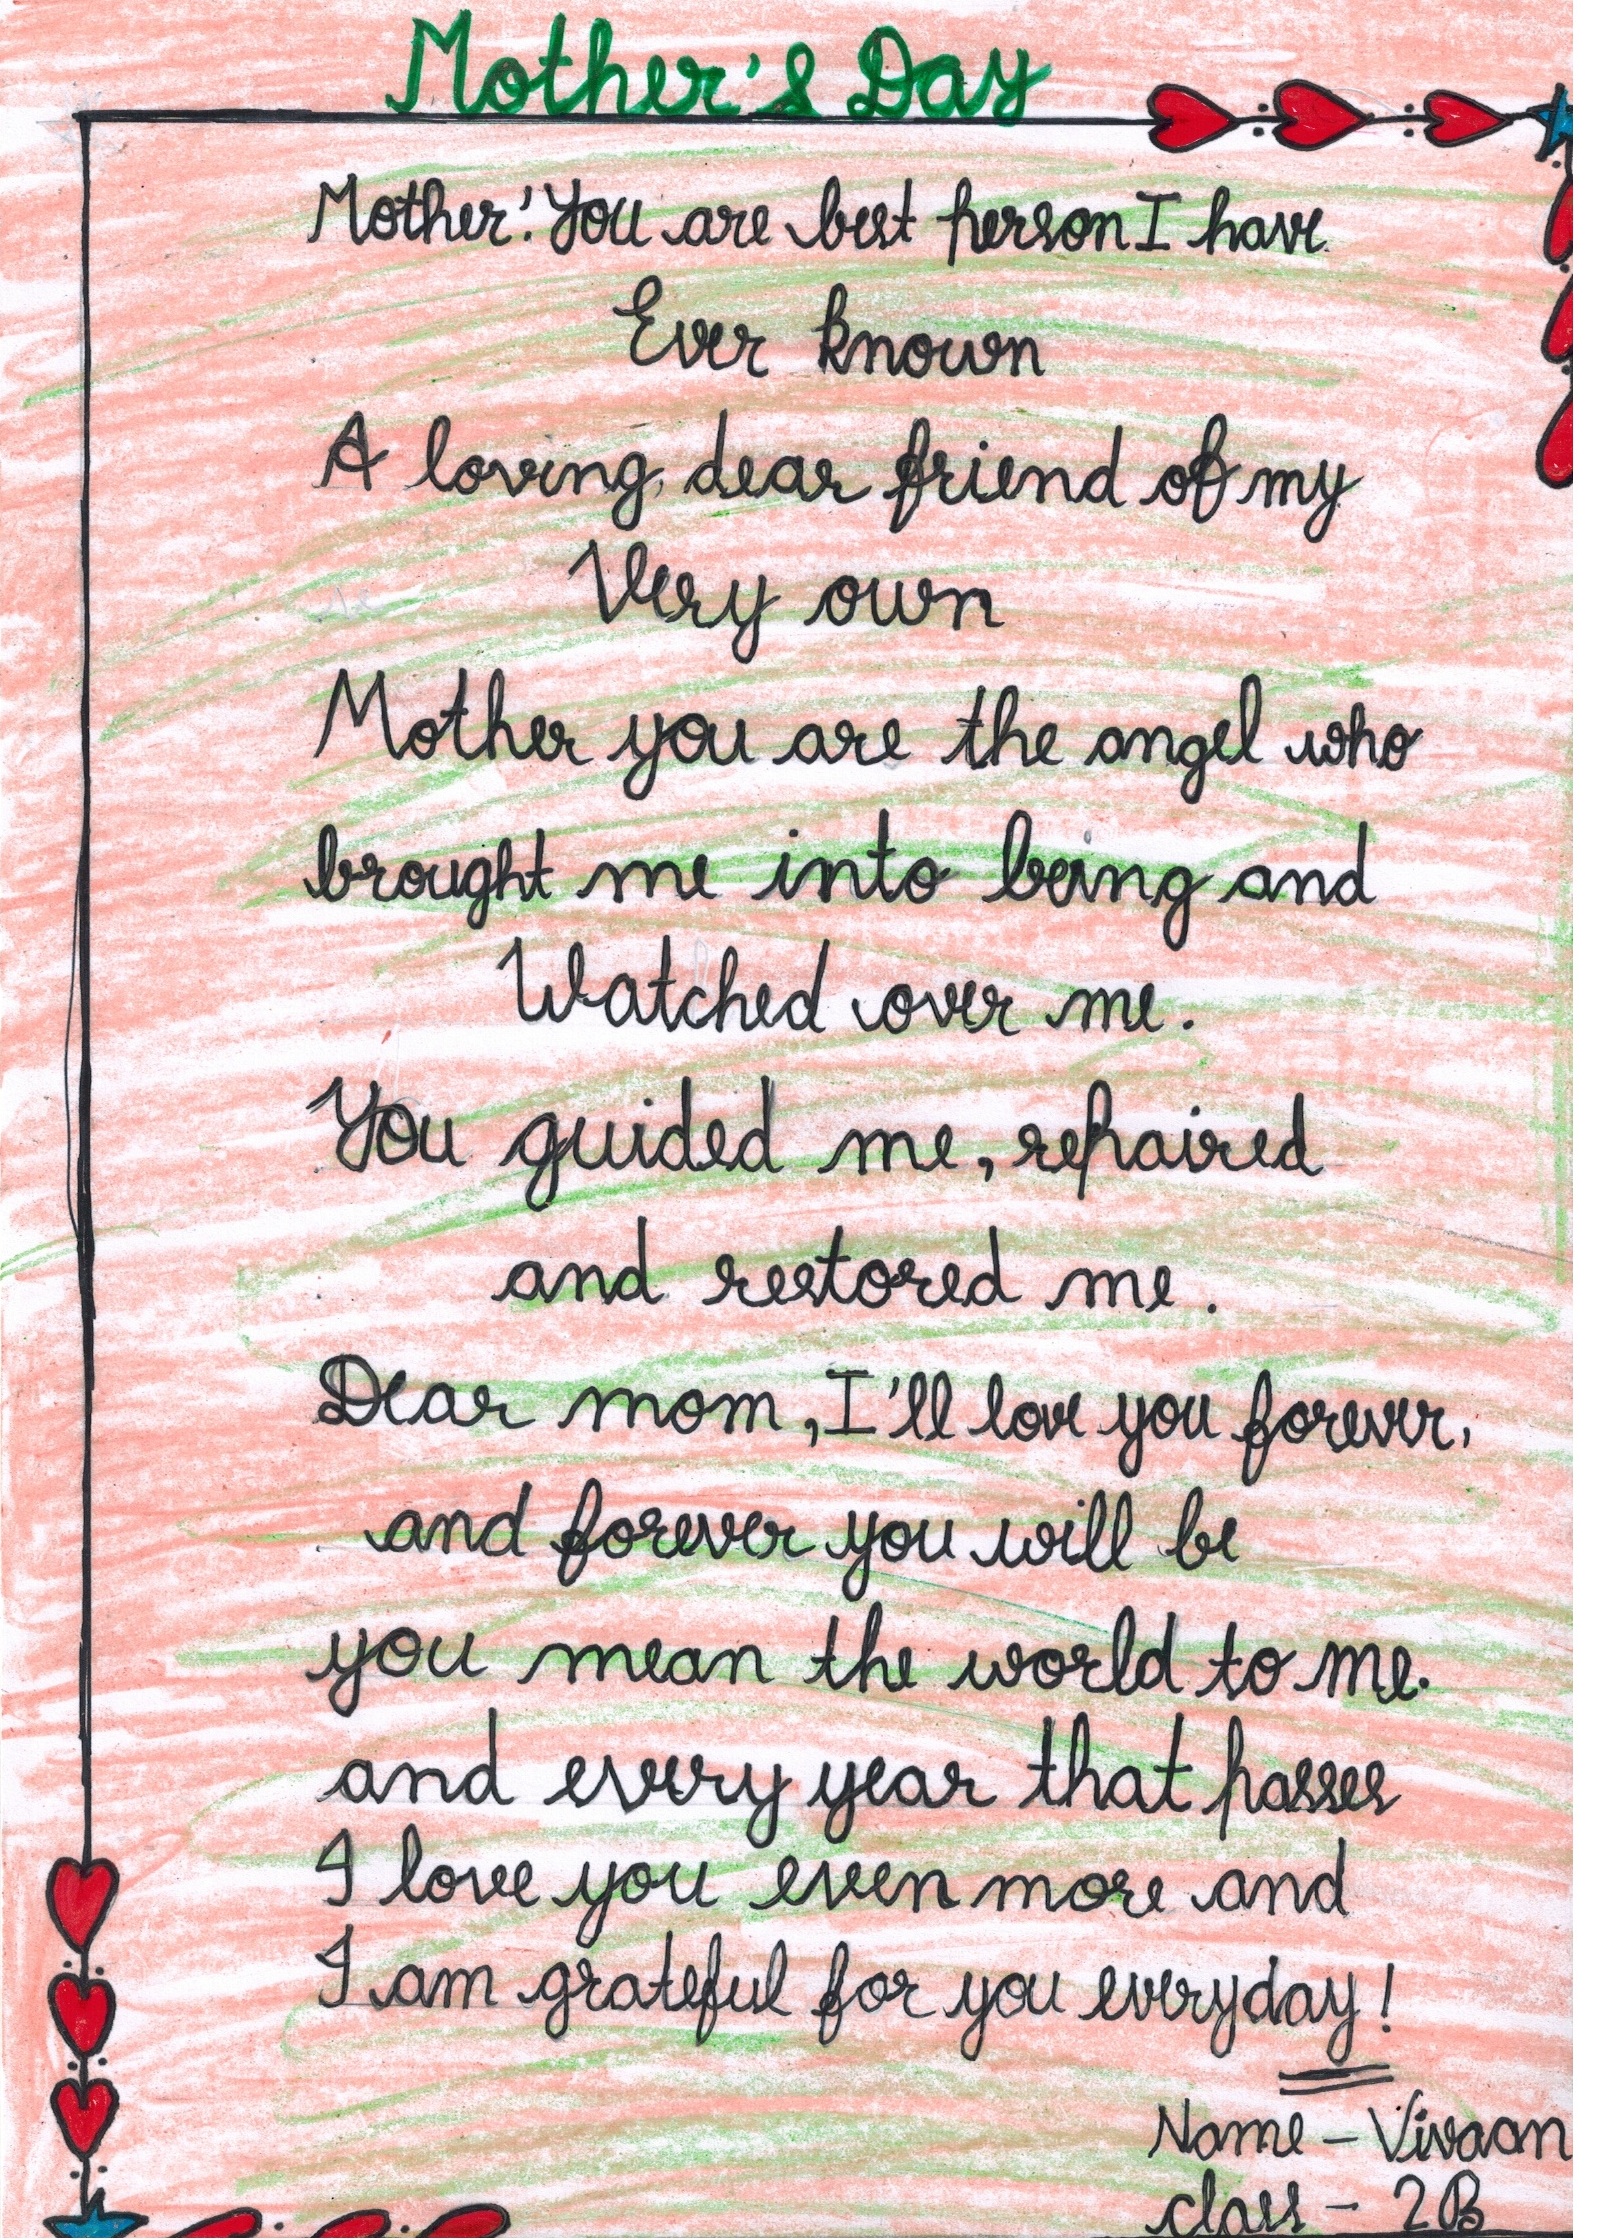 Mother's Day
Mother! You are best person I have
Ever known
A loving, dear friend of my
Very own
Mother you are the angel who
brought me into being and
Watched over me.
You guided me, repaired
and restored me.
Dear mom, I'll love you forever,
and forever you will be
you mean the world to me.
and every year that passes
I love you even more and
I am grateful for you everyday!
Name - Vivaan
class - 2B